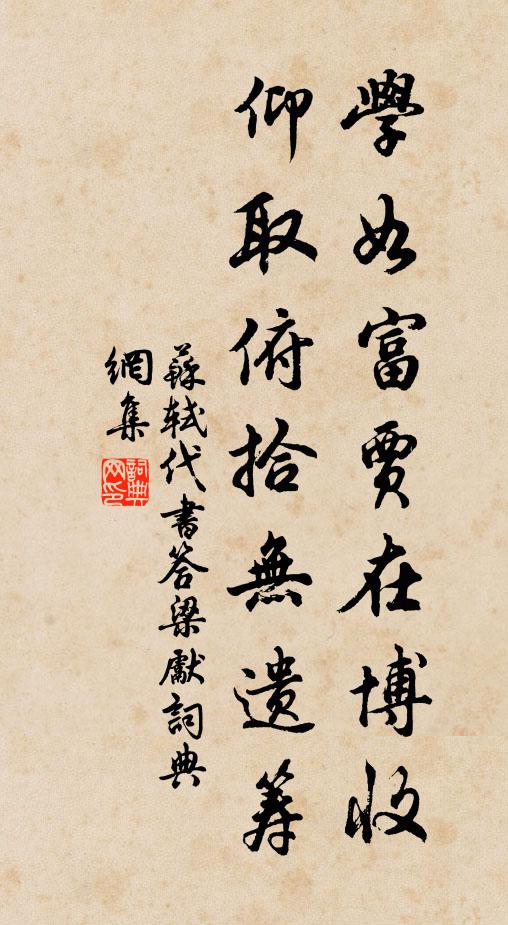 學如富賈在博收
仰取俯拾無遺筹
蘇軾代書答梁獻詞典
網集
詞典網印